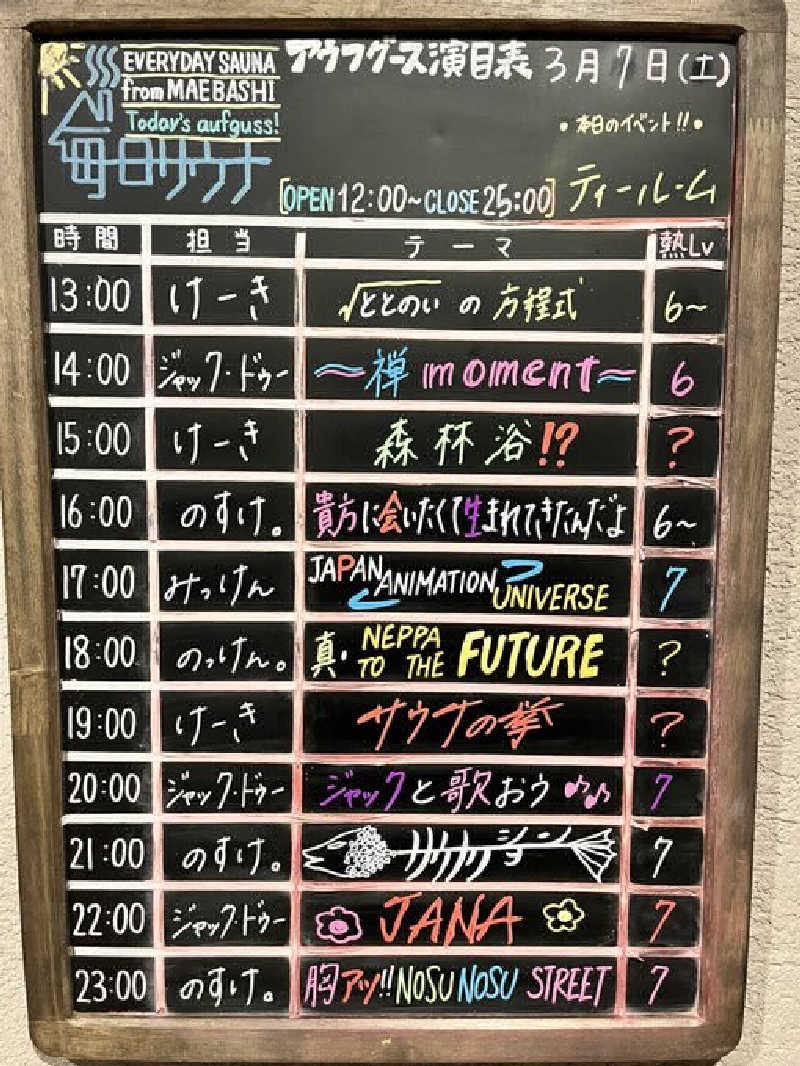 EVERYDAY SAUNA
from MAEBASHI
Today's aufguss!
毎日サウナ
アウフグース演目表 3月7日(土)
・本日のイベント!!・
[OPEN 12:00~CLOSE 25:00] ティールーム
時間 担当 テーマ 熱Lv
13:00 けーき √ととのい の 方程式 6~
14:00 ジャック・ドゥー ～禅 moment～ 6
15:00 けーき 森林浴!? ?
16:00 のすけ。 貴方に会いたくて生まれてきたんだよ 6~
17:00 みっけん JAPAN ANIMATION UNIVERSE 7
18:00 のっけん。 真・NEPPA TO THE FUTURE ?
19:00 けーき サウナの拳 ?
20:00 ジャック・ドゥー ジャックと歌おう♪♪ 7
21:00 のすけ。 7
22:00 ジャック・ドゥー JANA 7
23:00 のすけ。 胸アツ!! NOSU NOSU STREET 7